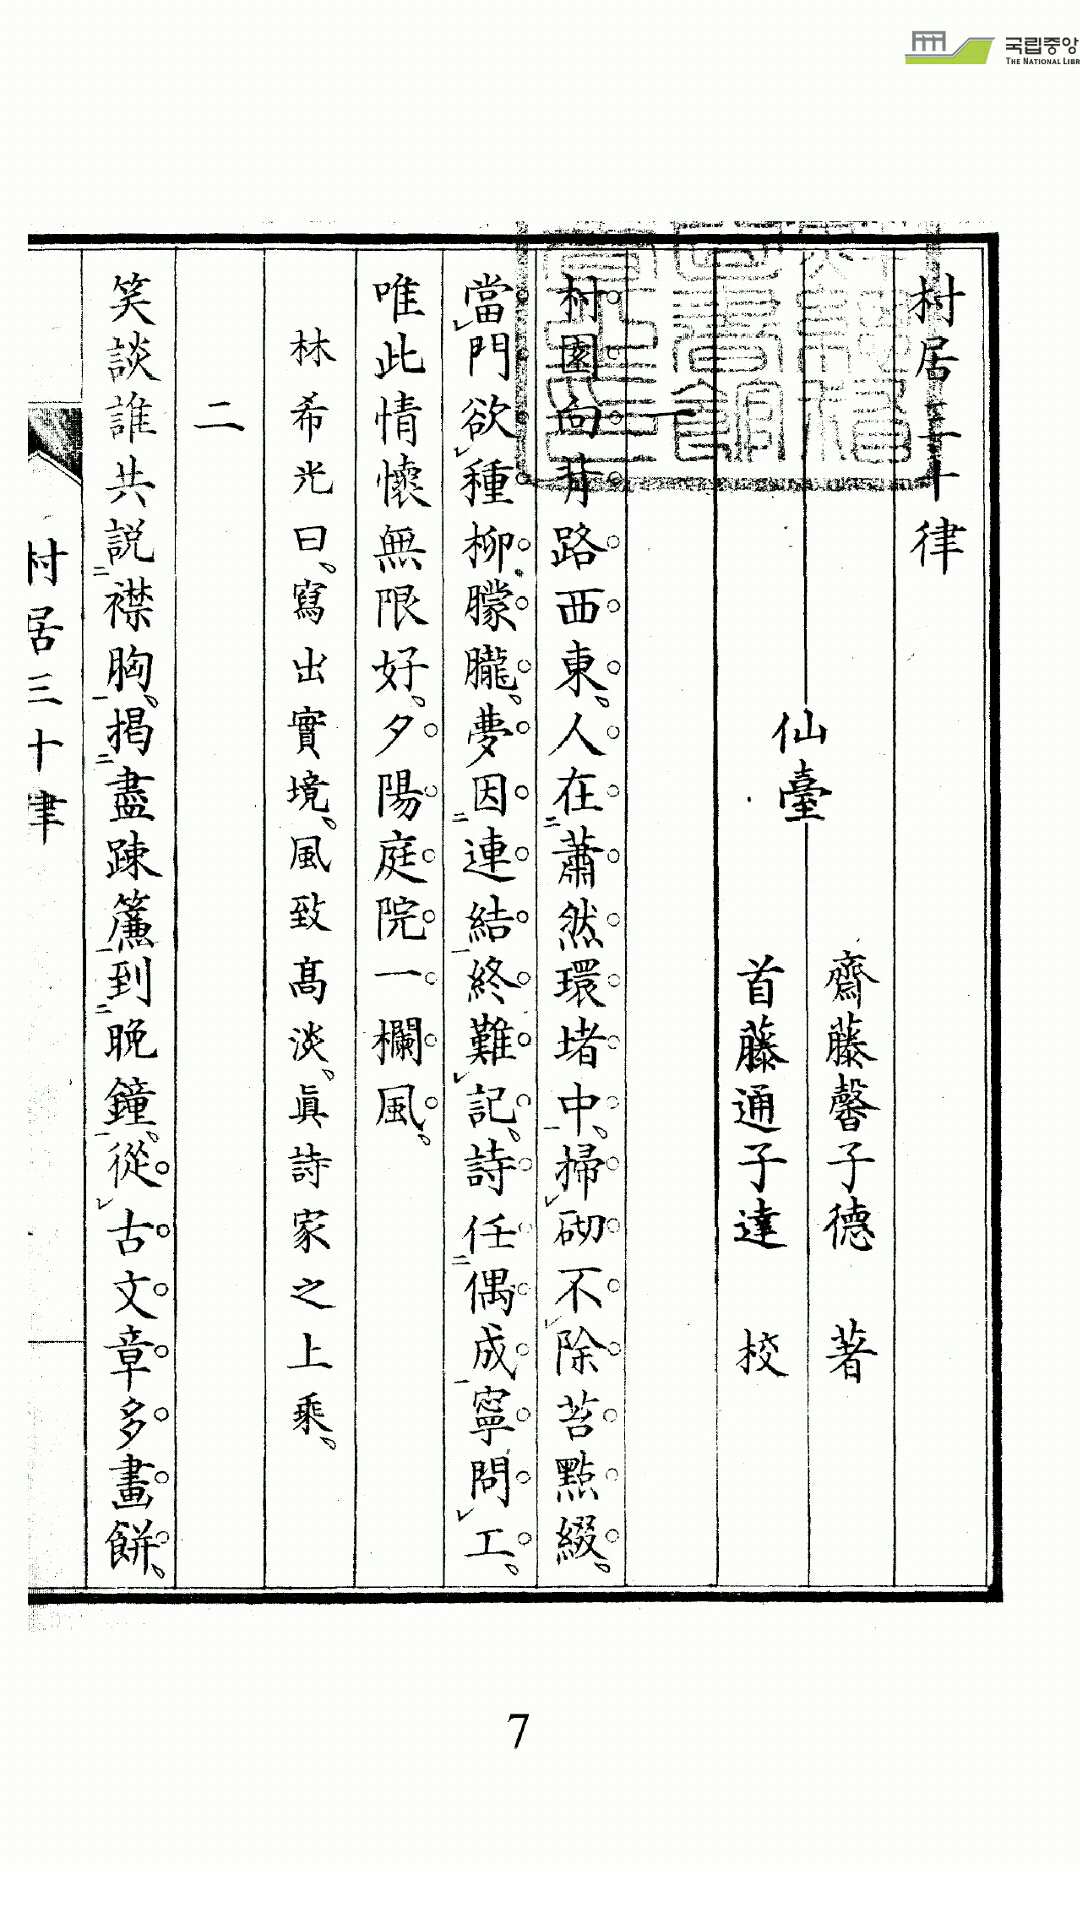 국립중앙
THE NATIONAL LIBR
村居三十律
仙臺
齋藤馨子德 著
首藤通子達 校
一
村園向背路西東、人在蕭然環堵中、掃砌不除苔點綴、
當門欲種柳朦朧、夢因連結終難記、詩任偶成寧問工、
唯此情懷無限好、夕陽庭院一欄風、
林希光曰、寫出實境、風致高淡、眞詩家之上乘、
二
笑談誰共説襟胸、掲盡疎簾到晚鐘、從古文章多畫餅、
村居三十律
7